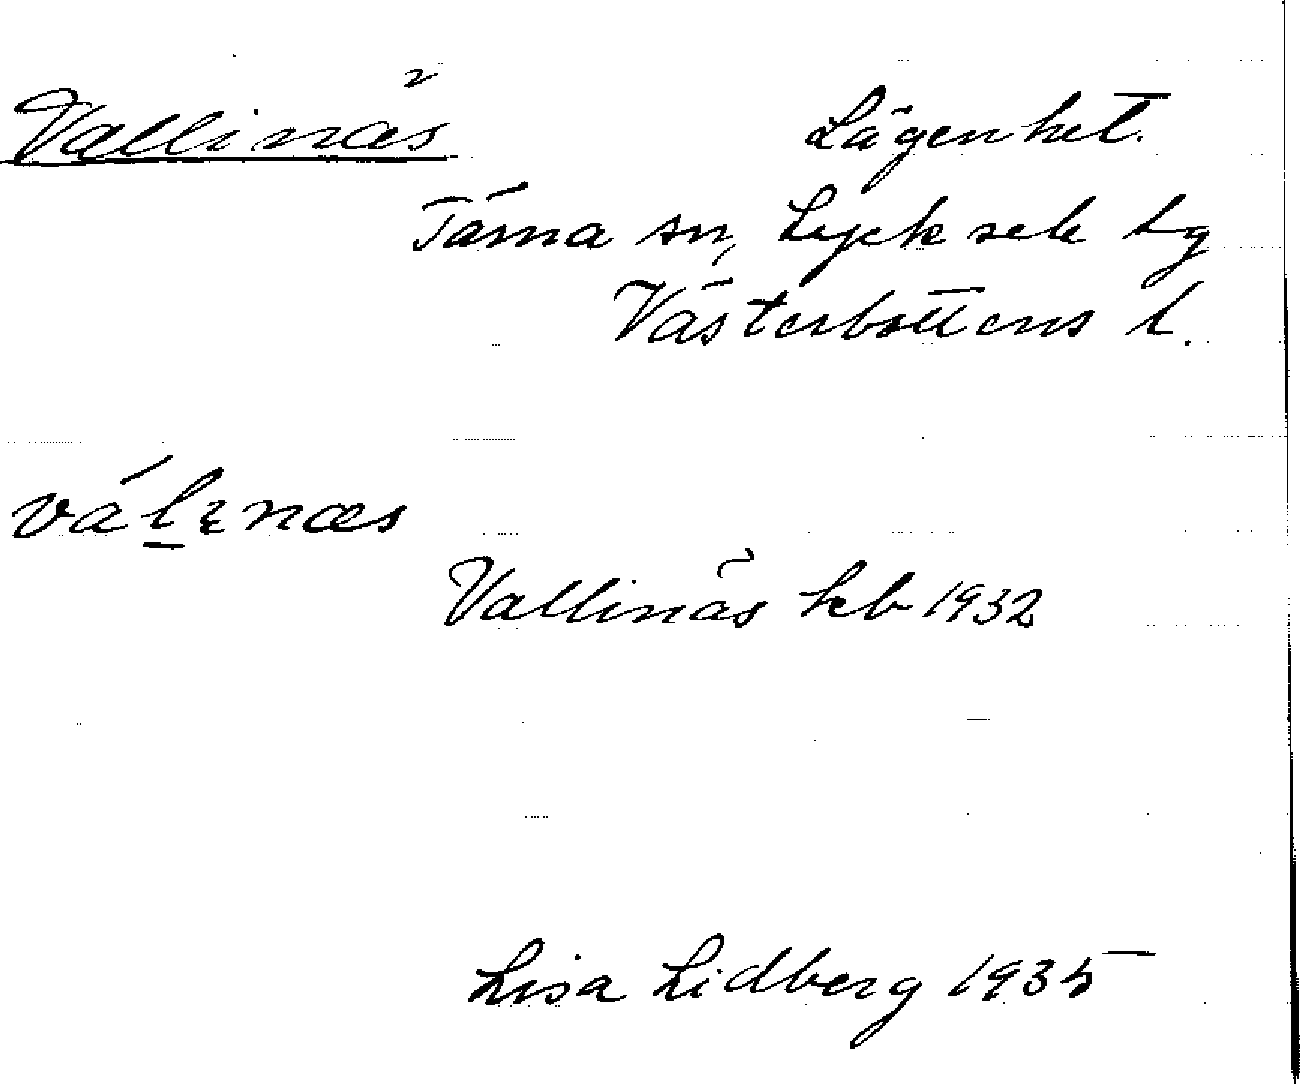 Vallinäs Lägenhet.
Tärna sn, Lycksele lg
Västerbottens l.
vál̠ɛnæs
Vallinäs kb 1932
Lisa Lidberg 1935